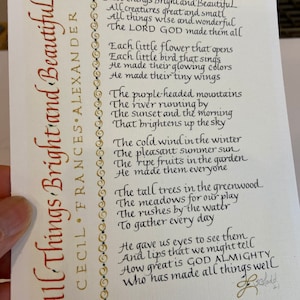 All Things Bright and Beautiful
CECIL • FRANCES • ALEXANDER
Things Bright and Beautiful
All creatures great and small
All things wise and wonderful
The LORD GOD made them all
Each little flower that opens
Each little bird that sings
He made their glowing colors
He made their tiny wings
The purple-headed mountains
The river running by
The sunset and the morning
That brightens up the sky
The cold wind in the winter
The pleasant summer sun
The ripe fruits in the garden
He made them everyone
The tall trees in the greenwood
The meadows for our play
The rushes by the water
To gather every day
He gave us eyes to see them
And lips that we might tell
How great is GOD ALMIGHTY
Who has made all things well